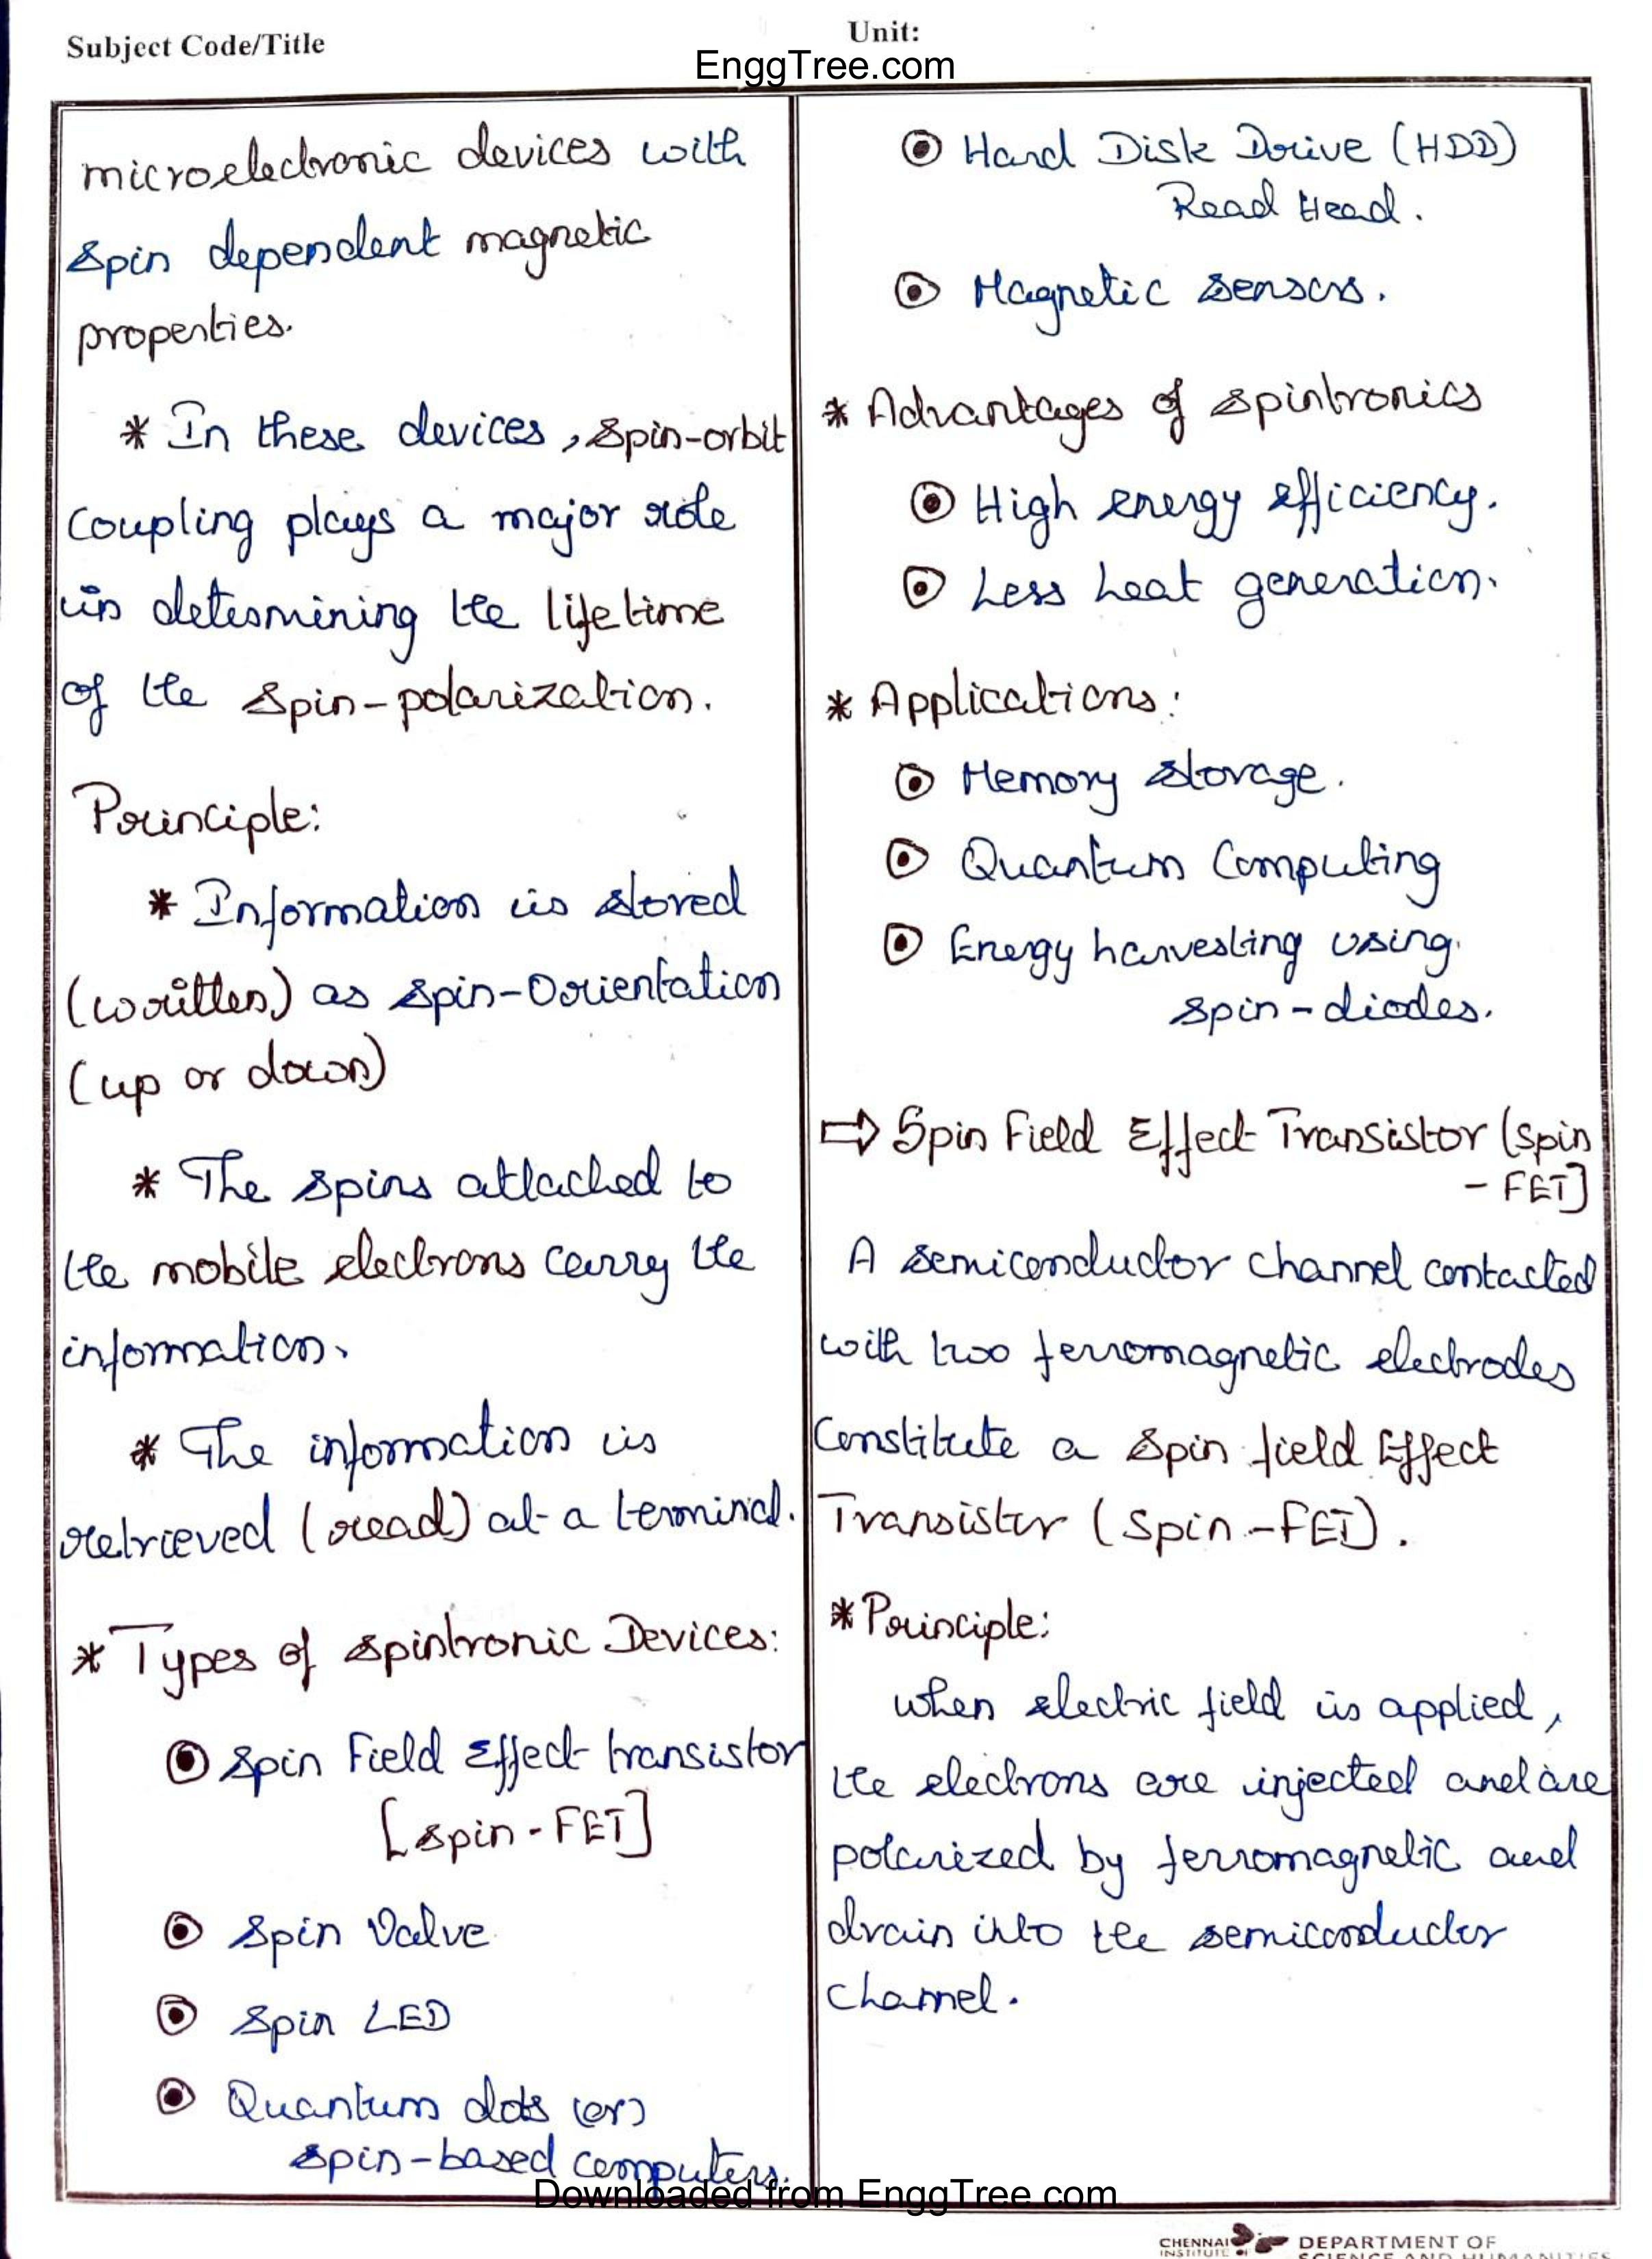 Subject Code/Title
Unit:
EnggTree.com
microelectronic devices with
spin dependent magnetic
properties.
* In these devices, spin-orbit
coupling plays a major role
in determining the lifetime
of the spin-polarization.
Principle:
* Information is stored
(written) as spin-Orientation
(up or down)
* The spins attached to
the mobile electrons carry the
information.
* The information is
retrieved (read) at a terminal.
* Types of spintronic Devices:
Spin Field Effect transistor
[spin-FET]
Spin Valve
Spin LED
Quantum dots (or)
spin-based computers.
Hard Disk Drive (HDD)
Read Head.
Magnetic sensors.
* Advantages of spintronics
High energy efficiency.
Less heat generation.
* Applications:
Memory storage.
Quantum Computing
Energy harvesting using
spin-diodes.
⇒ Spin Field Effect Transistor (spin
-FET]
A semiconductor channel contacted
with two ferromagnetic electrodes
Constitute a spin field Effect
Transistor (spin-FET).
* Principle:
When electric field is applied,
the electrons are injected and are
polarized by ferromagnetic and
drain into the semiconductor
channel.
Downloaded from EnggTree.com
CHENNAI
INSTITUTE OF
DEPARTMENT OF
SCIENCE AND HUMANITIES